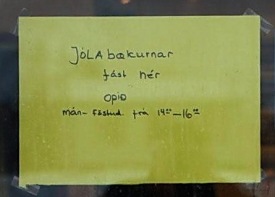 JÓLAbækurnar
fást hér
opið
mán- föstud. frá 14⁰⁰-16⁰⁰